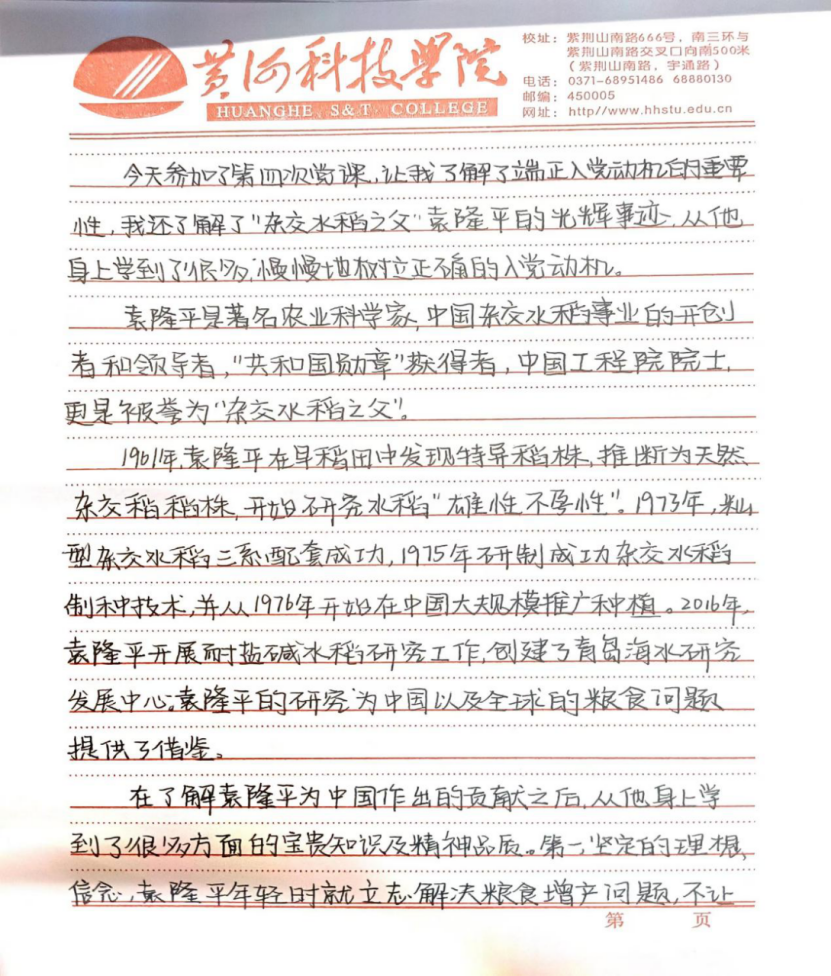 黄河科技学院
HUANGHE S&T COLLEGE
校址：紫荆山南路666号，南三环与
紫荆山南路交叉口向南500米
（紫荆山南路，宇通路）
电话：0371-68951486 68880130
邮编：450005
网址：http//www.hhstu.edu.cn
今天参加了第四次党课，让我了解了端正入党动机的重要
性，我还了解了"杂交水稻之父"袁隆平的光辉事迹，从他
身上学到了很多，慢慢地树立正确的入党动机。
袁隆平是著名农业科学家，中国杂交水稻事业的开创
者和领导者，"共和国勋章"获得者，中国工程院院士，
更是被誉为"杂交水稻之父"。
1961年，袁隆平在早稻田中发现特异稻株，推断为天然
杂交稻稻株，开始研究水稻"雄性不孕性"。1973年，籼
型杂交水稻三系配套成功，1975年研制成功杂交水稻
制种技术，并从1976年开始在中国大规模推广种植。2016年，
袁隆平开展耐盐碱水稻研究工作，创建了青岛海水研究
发展中心。袁隆平的研究为中国以及全球的粮食问题
提供了借鉴。
在了解袁隆平为中国作出的贡献之后，从他身上学
到了很多方面的宝贵知识及精神品质。第一，坚定的理想，
信念，袁隆平年轻时就立志解决粮食增产问题，不让
第 页